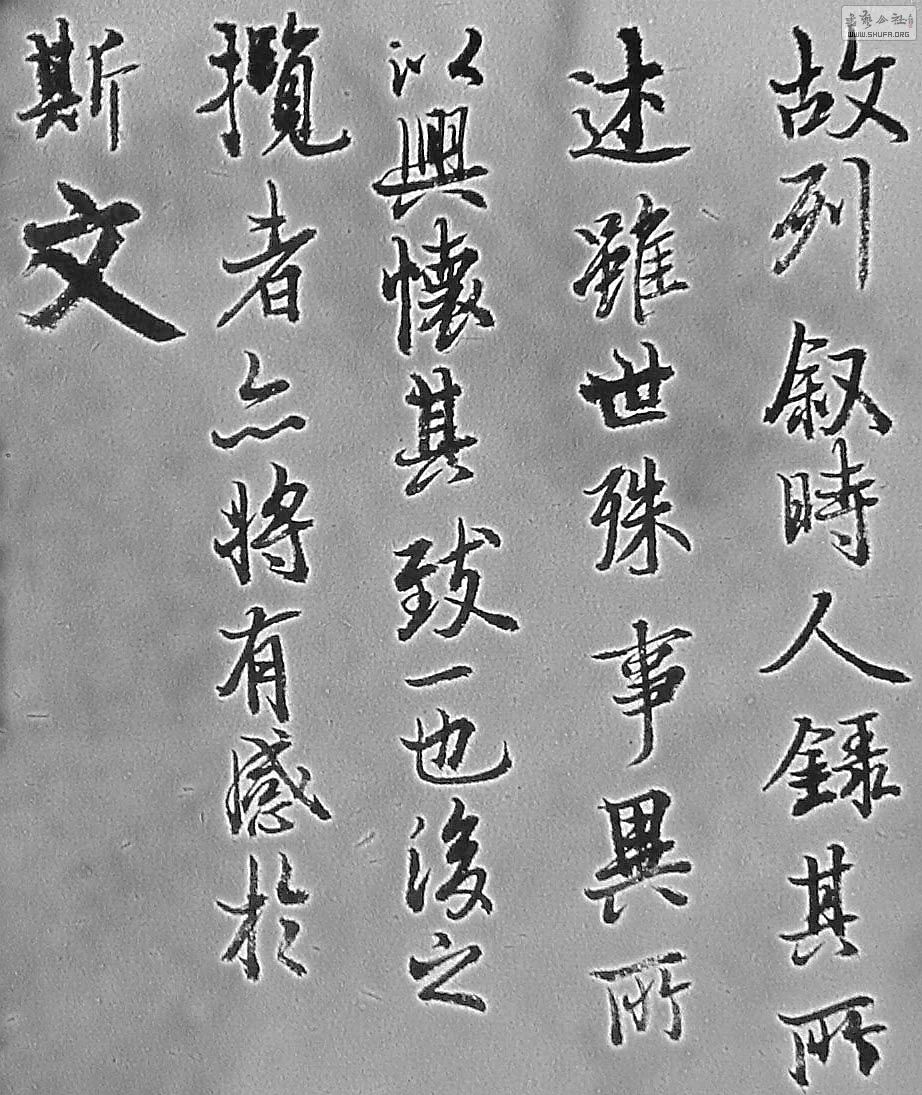 故列叙時人録其所
述雖世殊事異所
以興懷其致一也後之
攬者亦將有感於
斯文
WWW.SHUFA.ORG